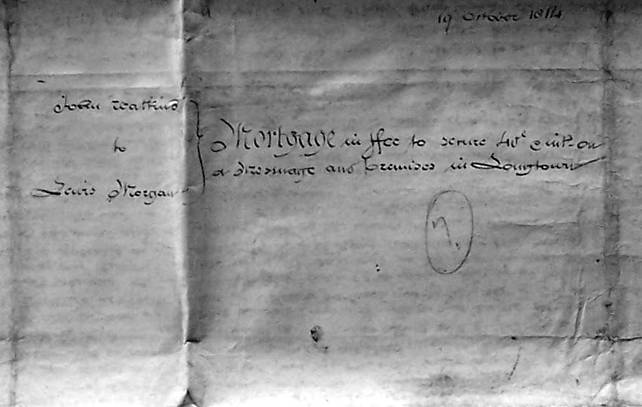 19 October 1814
John Watkins
to
Lewis Morgan
Mortgage in ffee to secure 40£ & int. on
a Messuage and Premises in Longtown
7.